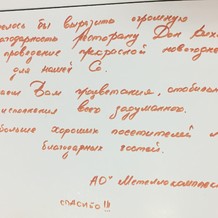 лось бы выразить огромную
агодарность ресторану Дон
проведение прекрасной новогодне
для нашей Со.
Вам процветания, стабильно
исполнения всего задуманного.
больше хороших посетителей и
благодарных гостей.
АО "Металлокомплект
спасибо!!!